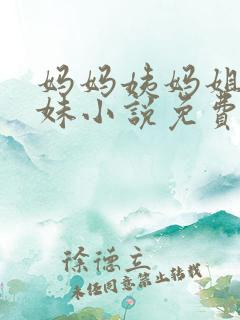 妈妈姨妈姐
妹小说免费
徐德立
未经同意禁止转载